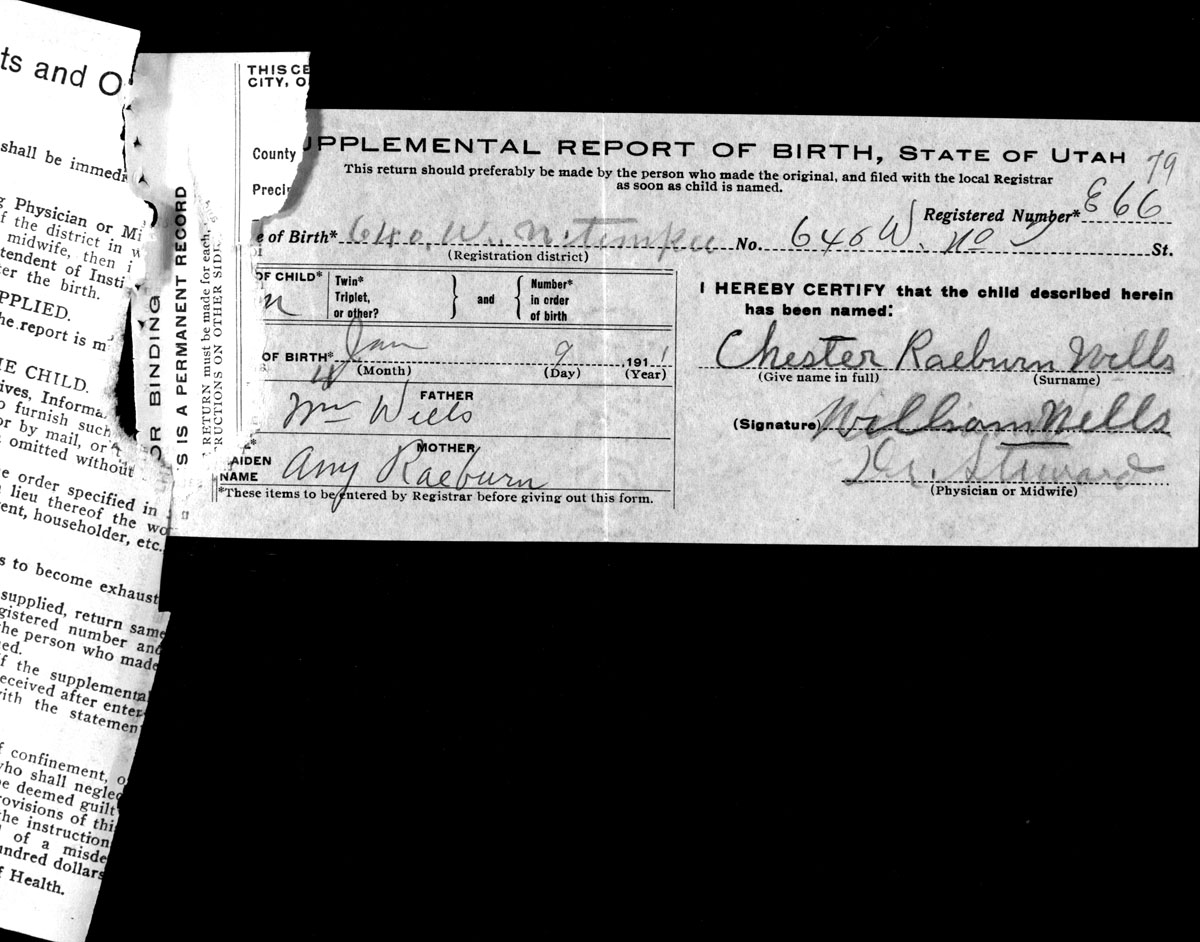 ts and O
shall be immedi
g Physician or Mi
f the district in w
midwife, then i
tendent of Insti
ter the birth.
PPLIED.
he report is m
IE CHILD.
ives, Informa
o furnish such
or by mail, or
omitted without
e order specified in
lieu thereof the wo
ent, householder, etc.
s to become exhaust
supplied, return same
gistered number and
he person who made
ed.
f the supplemental
eceived after enter-
ith the statement
f confinement, o
who shall neglec
be deemed guilt
rovisions of thi
he instruction
of a misde
undred dollars
f Health.
OR BINDING
S IS A PERMANENT RECORD
RETURN must be made for each
RUCTIONS ON OTHER SIDE
THIS CE
CITY, O
County
Precin
UPPLEMENTAL REPORT OF BIRTH, STATE OF UTAH 79
This return should preferably be made by the person who made the original, and filed with the local Registrar
as soon as child is named.
Registered Number* E66
e of Birth* 640. W. N. Temple No. 640 W. No St.
(Registration district)
OF CHILD* Twin* Triplet, or other? } and { Number* in order of birth
m
OF BIRTH* Jan 9, 1911
(Month) (Day) (Year)
FATHER
Wm Wills
MOTHER
AIDEN NAME Amy Raeburn
*These items to be entered by Registrar before giving out this form.
I HEREBY CERTIFY that the child described herein
has been named:
Chester Raeburn Wills
(Give name in full) (Surname)
(Signature) William Wells
Dr. Steward
(Physician or Midwife)